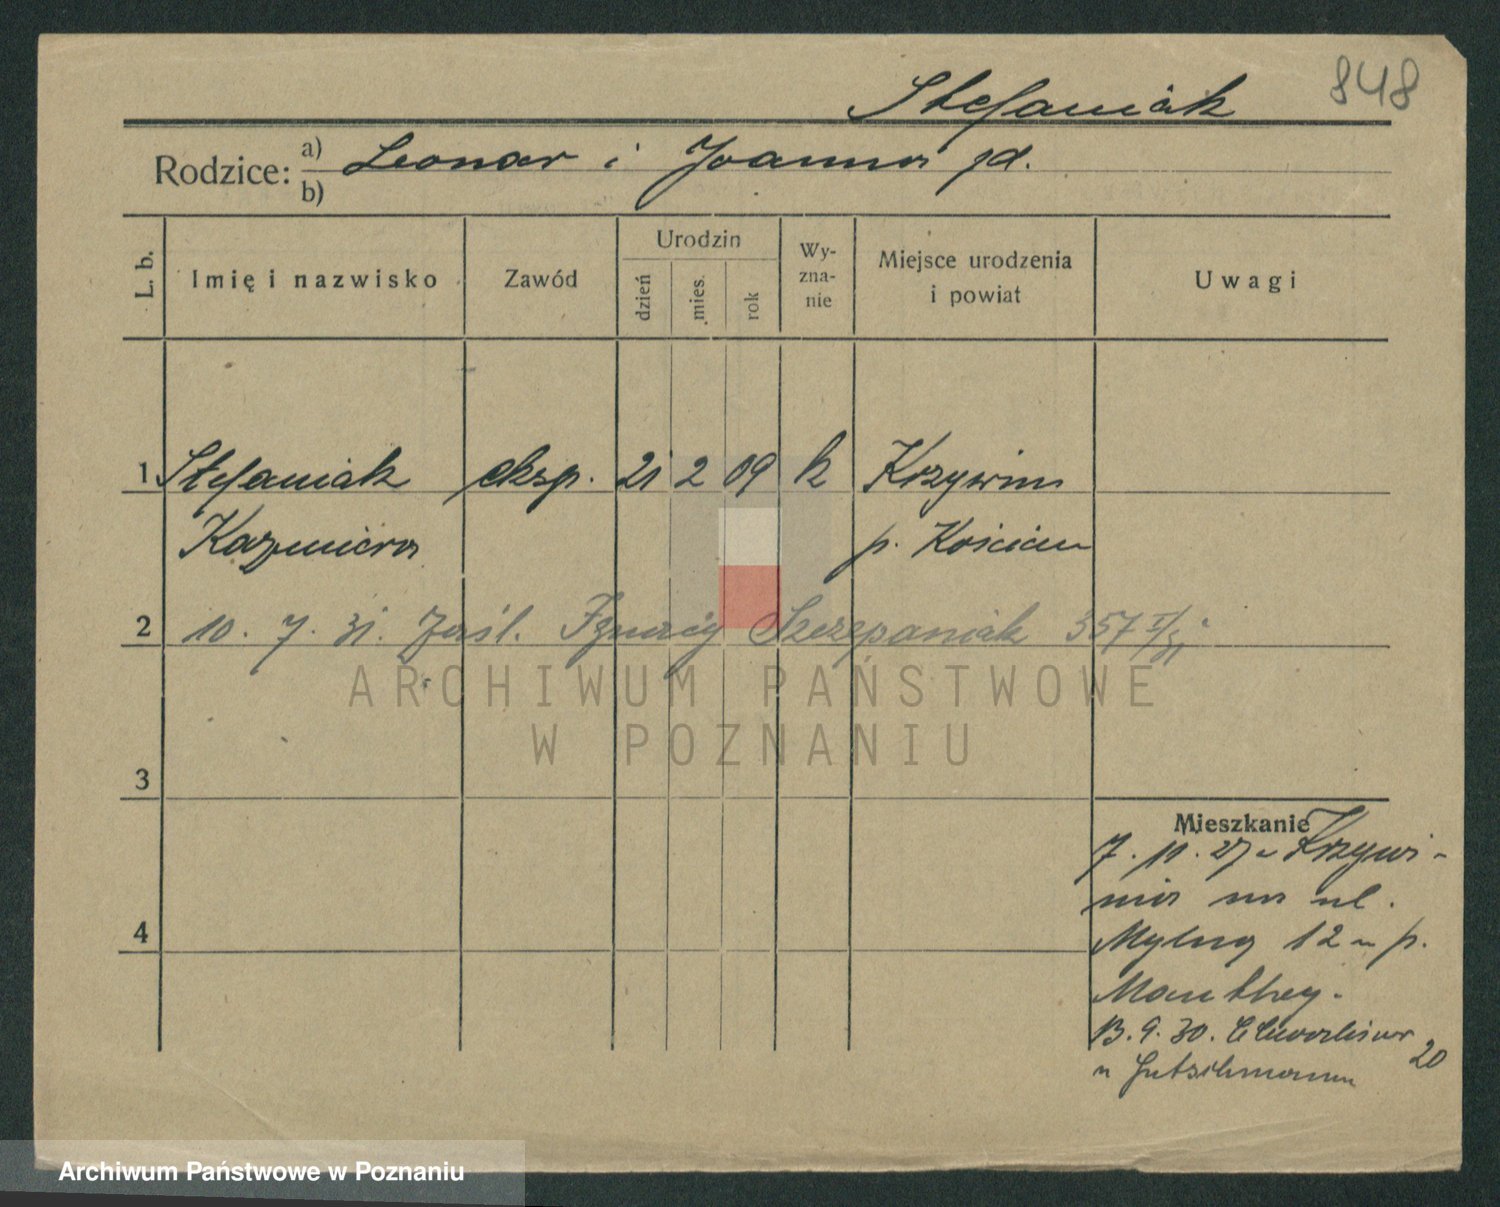 848
Stefaniak
Rodzice: a) Leonar i Joanna jd.
b)
L. b.
Imię i nazwisko
Zawód
Urodzin
dzień
mies.
rok
Wy-
zna-
nie
Miejsce urodzenia
i powiat
Uwagi
1 Stefaniak eksp. 21 2 09 k Krzywiniu
Kazmiera p. Kościan
2 10. 7. 31. zaśl. Ignacy Szczepaniak 357 I/31
3
4
Mieszkanie
7. 11. 27 z Krzywi-
nia na ul.
Mylną 12 u p.
Manthey.
13. 9. 30. 20
u Gutschmann
ARCHIWUM PAŃSTWOWE
W POZNANIU
Archiwum Państwowe w Poznaniu